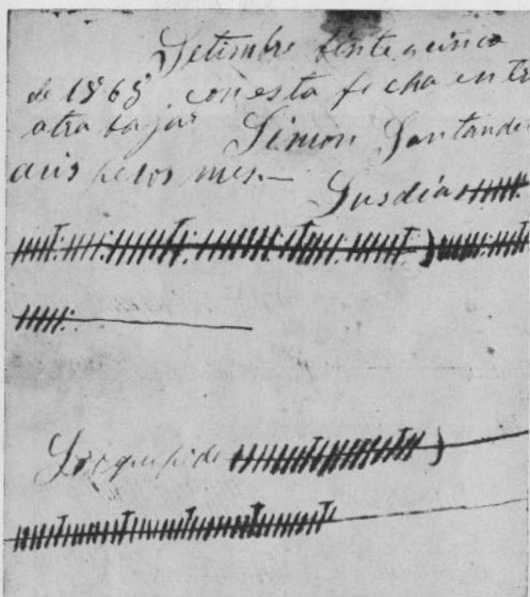 Setimbre beinte y cinco
de 1868 con esta fecha en tr
atra bajar Simon Santander
a seis pesos mes—
Sus dias
Lo que pide